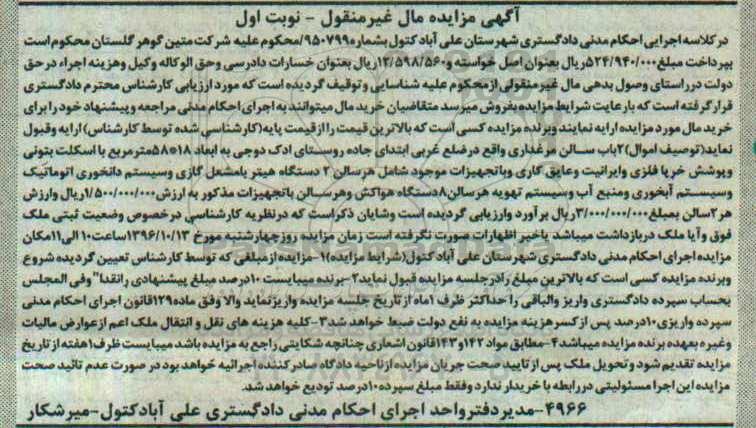 آگهی مزایده مال غیر منقول - نوبت اول
در کلاسه اجرایی احکام مدنی دادگستری شهرستان علی آباد کتول بشماره ۹۵۰۷۹۹/محکوم علیه شرکت متین گوهر گلستان محکوم است
بپرداخت مبلغ ۵۲۴/۹۴۰/۰۰۰ریال بعنوان اصل خواسته و ۱۲/۵۹۸/۵۶۰ریال بعنوان خسارات دادرسی وحق الوکاله وکیل وهزینه اجراء در حق
دولت در راستای وصول بدهی مال غیر منقولی از محکوم علیه شناسایی و توقیف گردیده است که مورد ارزیابی کارشناس محترم دادگستری
قرار گرفته است که با رعایت شرایط مزایده بفروش میرسد متقاضیان خرید مال میتوانند به اجرای احکام مدنی مراجعه و پیشنهاد خود را برای
خرید مال مورد مزایده ارایه نمایند وبرنده مزایده کسی است که بالاترین قیمت را از قیمت پایه(کارشناسی شده توسط کارشناس) ارایه وقبول
نماید(توصیف اموال)۲باب سالن مرغداری واقع در ضلع غربی ابتدای جاده روستای ادک دوجی به ابعاد ۱۸*۵۸مترمربع با اسکلت بتونی
وپوشش خرپا فلزی وایرانیت وعایق کاری وباتجهیزات موجود شامل هر سالن ۲ دستگاه هیتر یامشعل گازی وسیستم دانخوری اتوماتیک
وسیستم آبخوری ومنبع آب وسیستم تهویه هر سالن۸دستگاه هواکش وهر سالن باتجهیزات مذکور به ارزش ۱/۵۰۰/۰۰۰/۰۰۰ریال وارزش
هر۲سالن بمبلغ۳/۰۰۰/۰۰۰/۰۰۰ریال برآورد وارزیابی گردیده است وشایان ذکر است که در نظریه کارشناسی در خصوص وضعیت ثبتی ملک
فوق وآیا ملک در بازداشت میباشد یاخیر اظهارات صورت نگرفته است زمان مزایده روز چهارشنبه مورخ ۱۳۹۶/۱۰/۱۳ساعت۱۰ الی ۱۱مکان
مزایده اجرای احکام مدنی دادگستری شهرستان علی آباد کتول(شرایط مزایده)۱- مزایده از مبلغی که توسط کارشناس تعیین گردیده شروع
وبرنده مزایده کسی است که بالاترین مبلغ را در جلسه مزایده قبول نماید۲-برنده میبایست ۱۰درصد مبلغ پیشنهادی رانقدا" وفی المجلس
بحساب سپرده دادگستری واریز والباقی را حداکثر ظرف ۱ماه از تاریخ جلسه مزایده واریز نماید والا وفق ماده ۱۲۹قانون اجرای احکام مدنی
سپرده واریزی۱۰درصد پس از کسر هزینه مزایده به نفع دولت ضبط خواهد شد۳-کلیه هزینه های نقل و انتقال ملک اعم از عوارض مالیات
وغیره بعهده برنده مزایده میباشد۴-مطابق مواد ۱۴۲و۱۴۳قانون اشعاری چنانچه شکایتی راجع به مزایده باشد میبایست ظرف ۱هفته از تاریخ
مزایده تقدیم شود وتحویل ملک پس از تایید صحت جریان مزایده از ناحیه دادگاه صادر کننده اجرائیه خواهد بود در صورت عدم تائید صحت
مزایده این اجرا مسئولیتی در رابطه با خریدار ندارد وفقط مبلغ سپرده ۱۰درصد تودیع خواهد شد.
۴۹۶۶-مدیر دفتر واحد اجرای احکام مدنی دادگستری علی آباد کتول-میرشکار